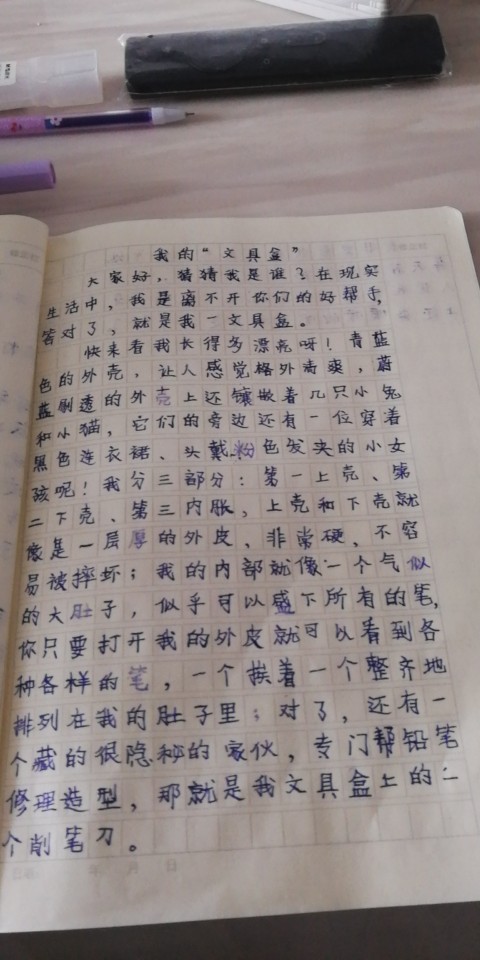 我的“文具盒”
大家好，猜猜我是谁？在现实
生活中，我是离不开你们的好帮手，
答对了，就是我一文具盒。
快来看我长得多漂亮呀！青蓝
色的外壳，让人感觉格外清爽，蔚
蓝剔透的外壳上还镶嵌着几只小兔
和小猫，它们的旁边还有一位穿着
黑色连衣裙、头戴粉色发夹的小女
孩呢！我分三部分：第一上壳、第
二下壳、第三内胀，上壳和下壳就
像是一层厚的外皮，非常硬，不容
易被摔坏；我的内部就像一个气似
的大肚子，似乎可以盛下所有的笔，
你只要打开我的外皮就可以看到各
种各样的笔，一个挨着一个整齐地
排列在我的肚子里；对了，还有一
个藏的很隐秘的家伙，专门帮铅笔
修理造型，那就是我文具盒上的二
个削笔刀。
年 月 日